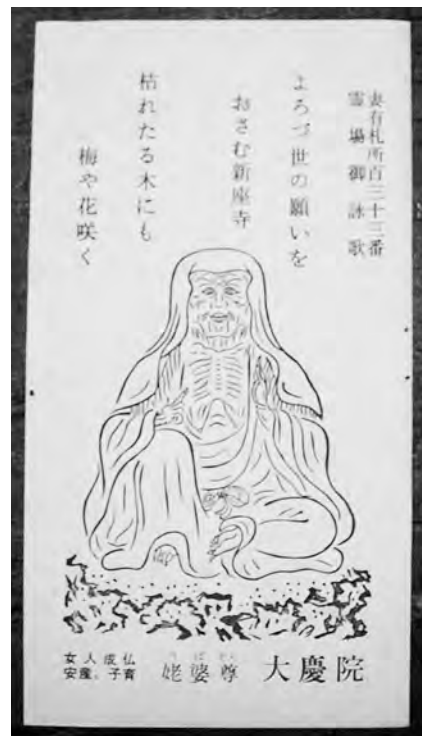 妻有札所百三十三番
霊場御詠歌
よろづ世の願いを
おさむ新座寺
枯れたる木にも
梅や花咲く
大慶院
姥婆尊
女人成仏
安産、子育